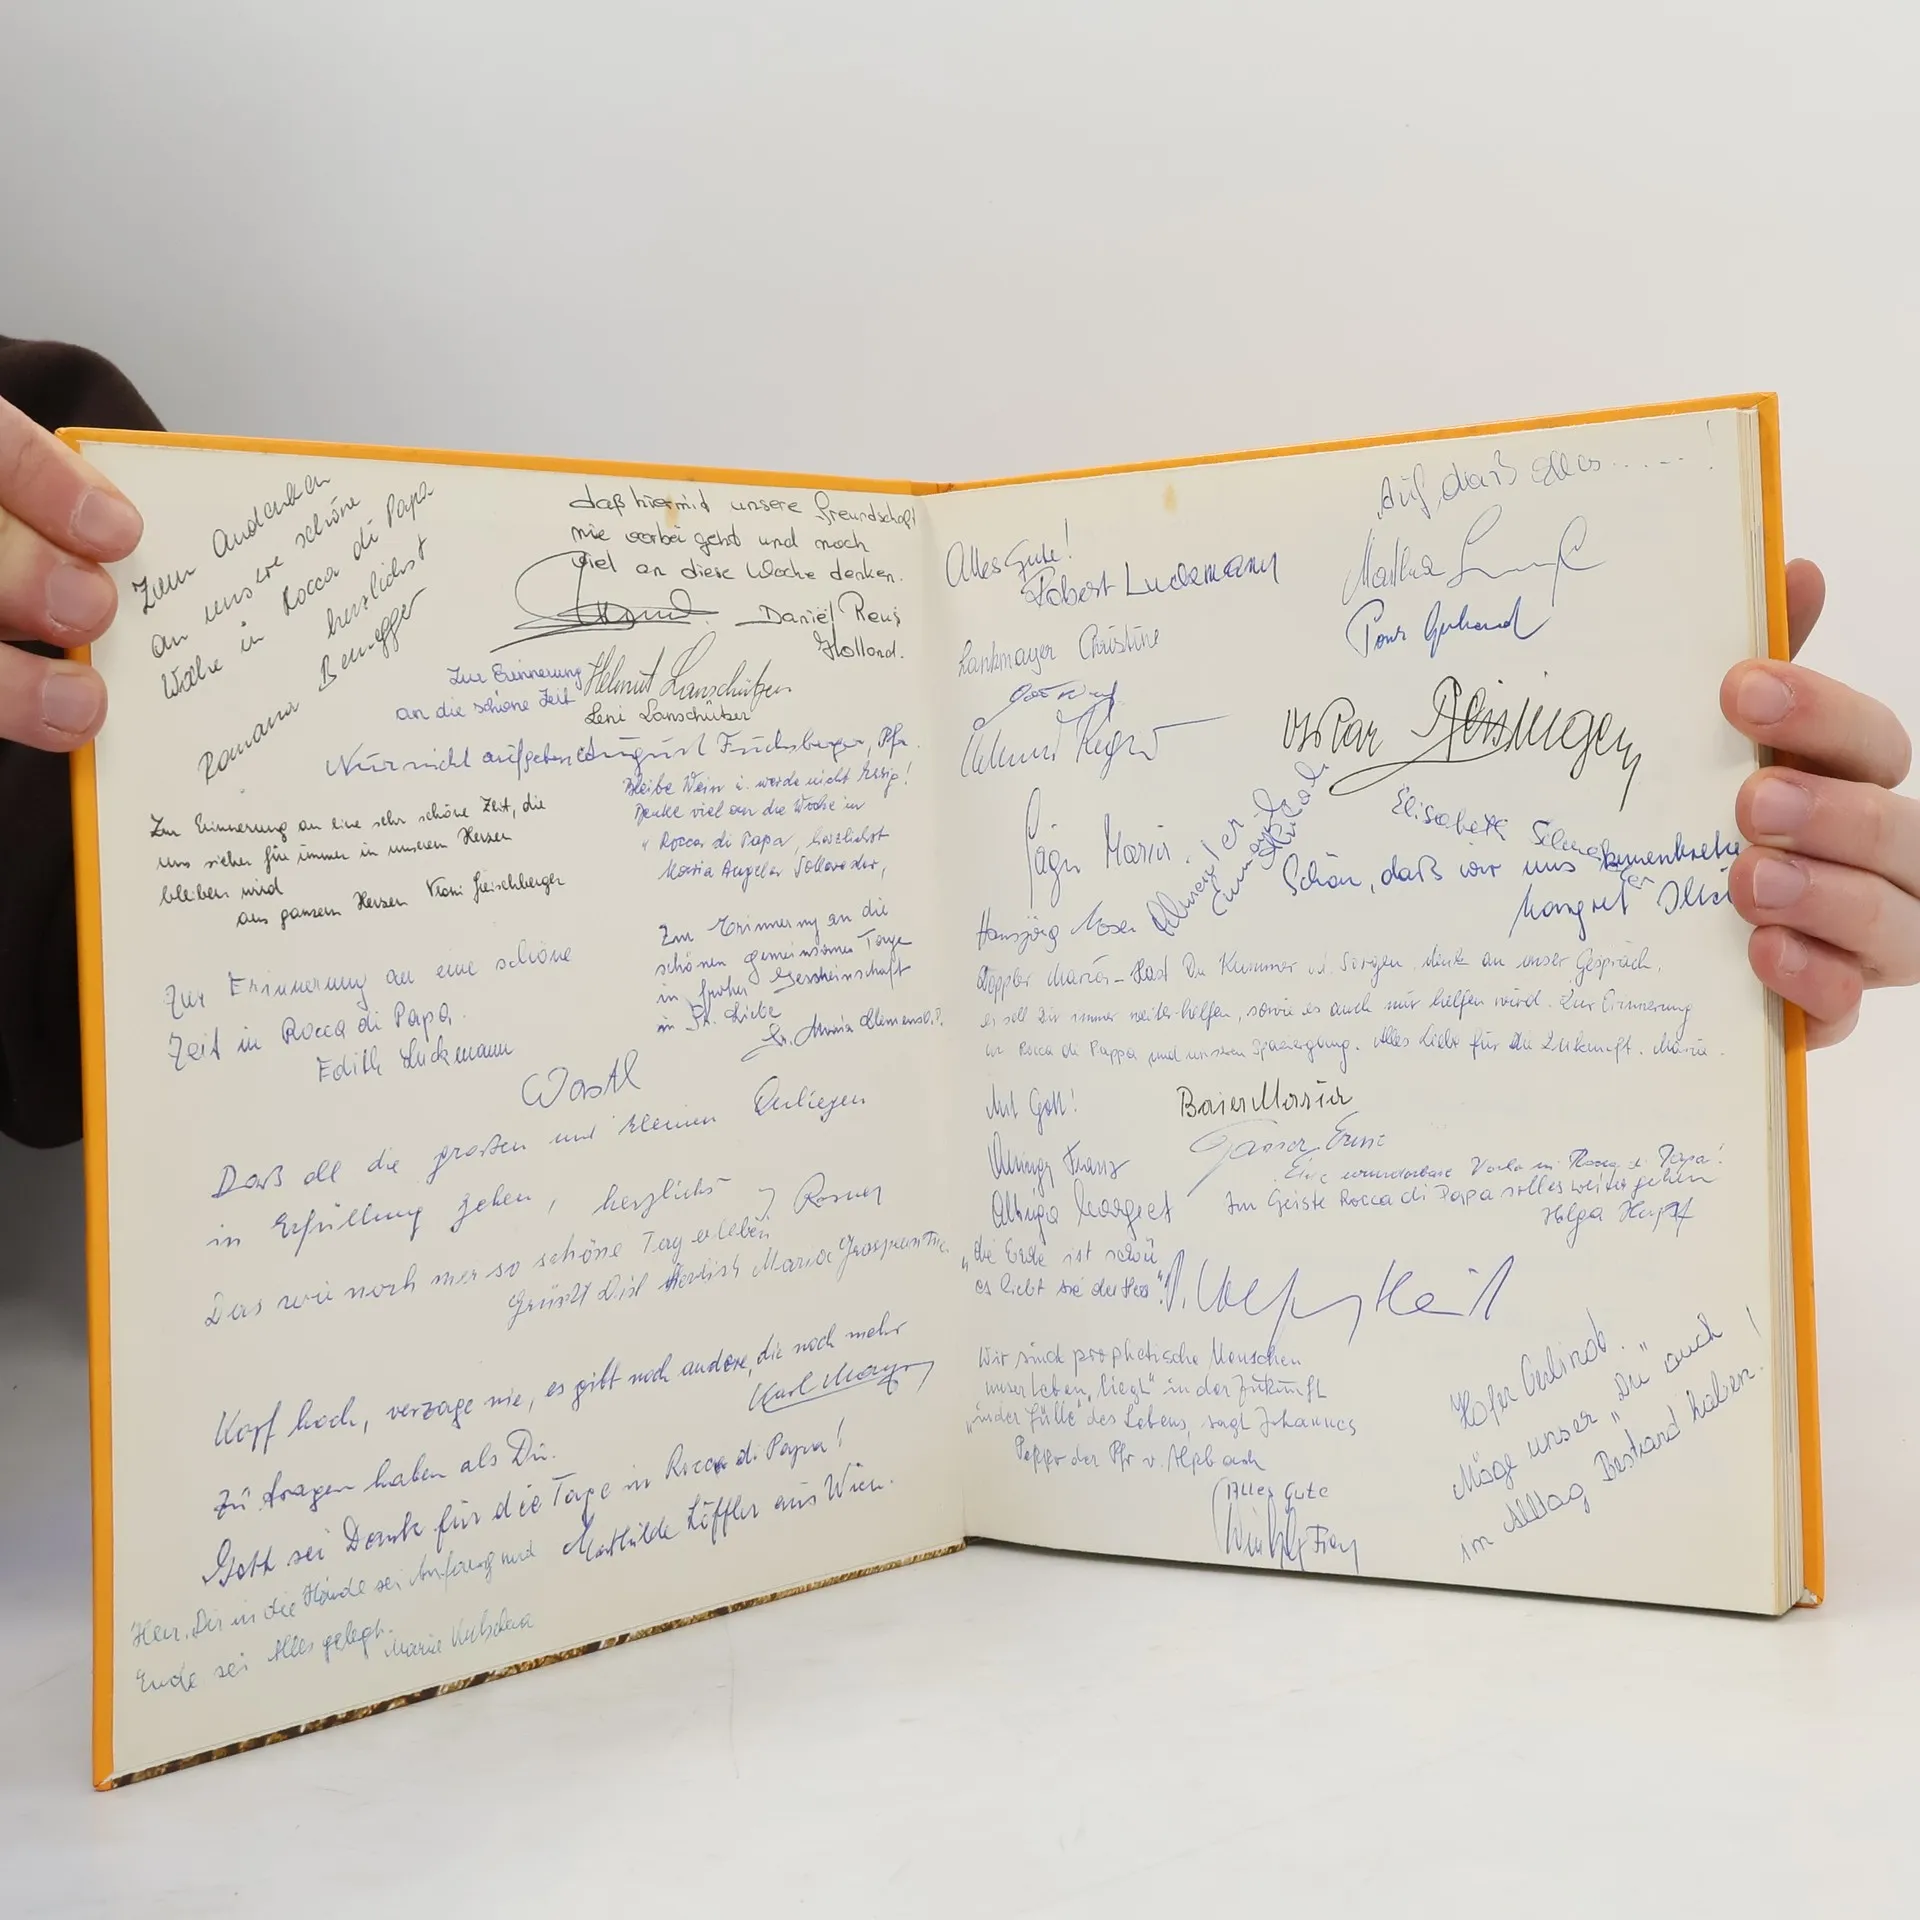 Zum Andenken
an unsere schöne
Woche in Rocca di Papa
herzlichst
Romana Bernegger
daß hiermit unsere Freundschaft
nie vorbei geht und noch
viel an diese Woche denken.
Daniël Reus
Holland.
Zur Erinnerung
an die schöne Zeit
Helmut Lanschützer
Leni Lanschützer
Nur nicht aufgeben August Fuchsberger, Pfr.
Bleibe Wein u. werde nicht Essig!
Denke viel an die Woche in
Rocca di Papa, herzlichst
Maria Angela
Zur Erinnerung an eine sehr schöne Zeit, die
uns sicher für immer in unseren Herzen
bleiben wird
aus ganzem Herzen Vroni
Zur Erinnerung an die
schönen gemeinsamen Tage
in froher Gemeinschaft
in Liebe
Sr. Maria Klemens
Zur Erinnerung an eine schöne
Zeit in Rocca di Papa.
Edith Luckmann
Wastl
Daß all die großen und kleinen Anliegen
in Erfüllung gehen, herzlichst Rosner
Das wir noch mer so schöne Tag erleben
Grüßt Dich Herlish Maria
Kopf hoch, verzage nie, es gibt noch andere, die noch mehr
zu tragen haben als Du.
Karl Mayr
Gott sei Dank für die Tage in Rocca di Papa!
Mathilde Löffler aus Wien.
Herr, Dir in die Hände sei Anfang und
Ende sei Alles gelegt.
Marie
Auf, daß Alles ......!
Alles Gute!
Robert Luckmann
Martha
Gerhard
Lankmayer Christine
Oskar
Maria
Elisabeth
Schön, daß wir uns kennenlernten
Margret
Hansjörg Moser
Doppler Maria - Hast Du Kummer od. Sorgen, denk an unser Gespräch,
es soll Dir immer weiterhelfen, sowie es auch mir helfen wird. Zur Erinnerung
an Rocca di Pappa und unseren Spaziergang. Alles Liebe für die Zukunft. Maria.
Mit Gott!
Baier Maria
Ganser Ernst
Franz
Eine wunderbare Woche in Rocca di Papa!
Im Geiste Rocca di Papa solles weitergehen
Helga
Margret
"die Erde ist schön
es liebt sie der Herr".
Wir sind prophetische Menschen
unser Leben "liegt" in der Zukunft
"in der Fülle" des Lebens, sagt Johannes
der Pfr v. Alpbach
Hofer Gerlinde.
Möge unser "Du" auch
im Alltag Bestand haben!
Alles Gute